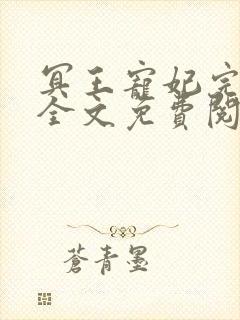 冥王寵妃完
全文免費閱
蒼青墨